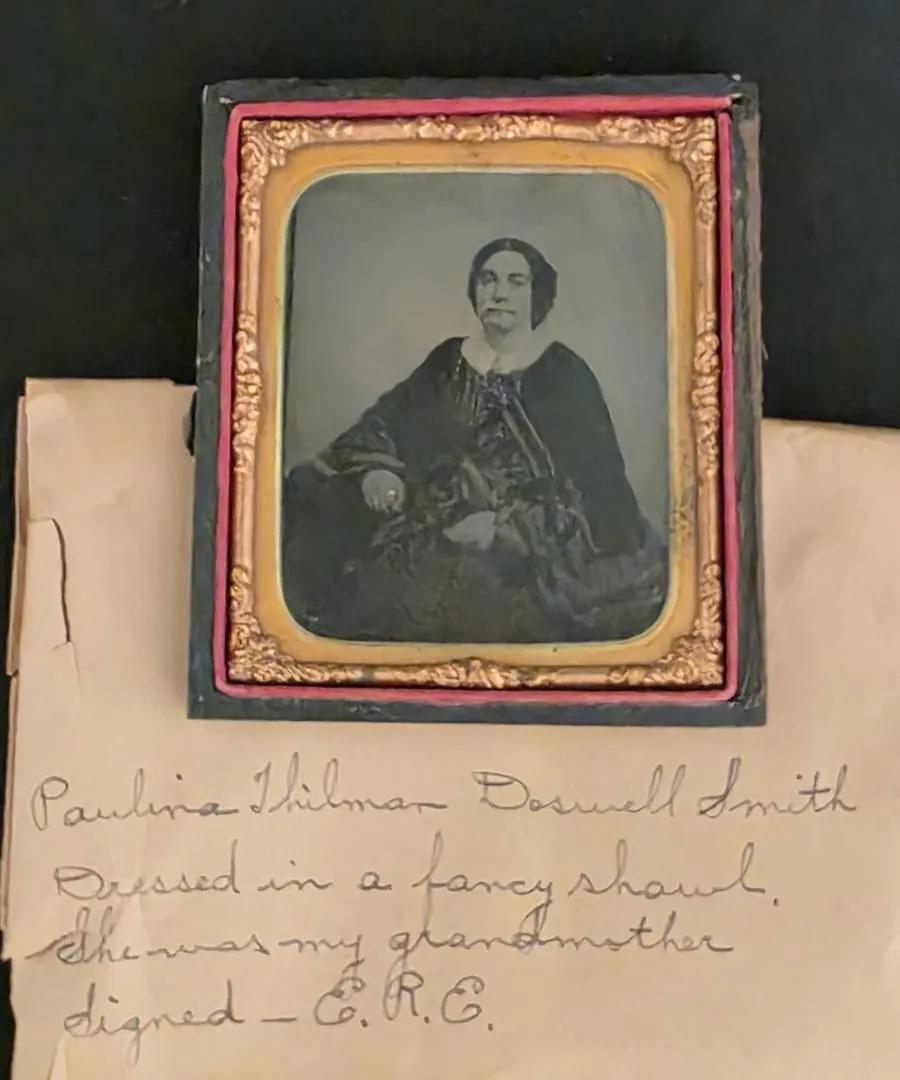 Paulina Thilman Doswell Smith
Dressed in a fancy shawl.
She was my grandmother
signed – E. R. E.